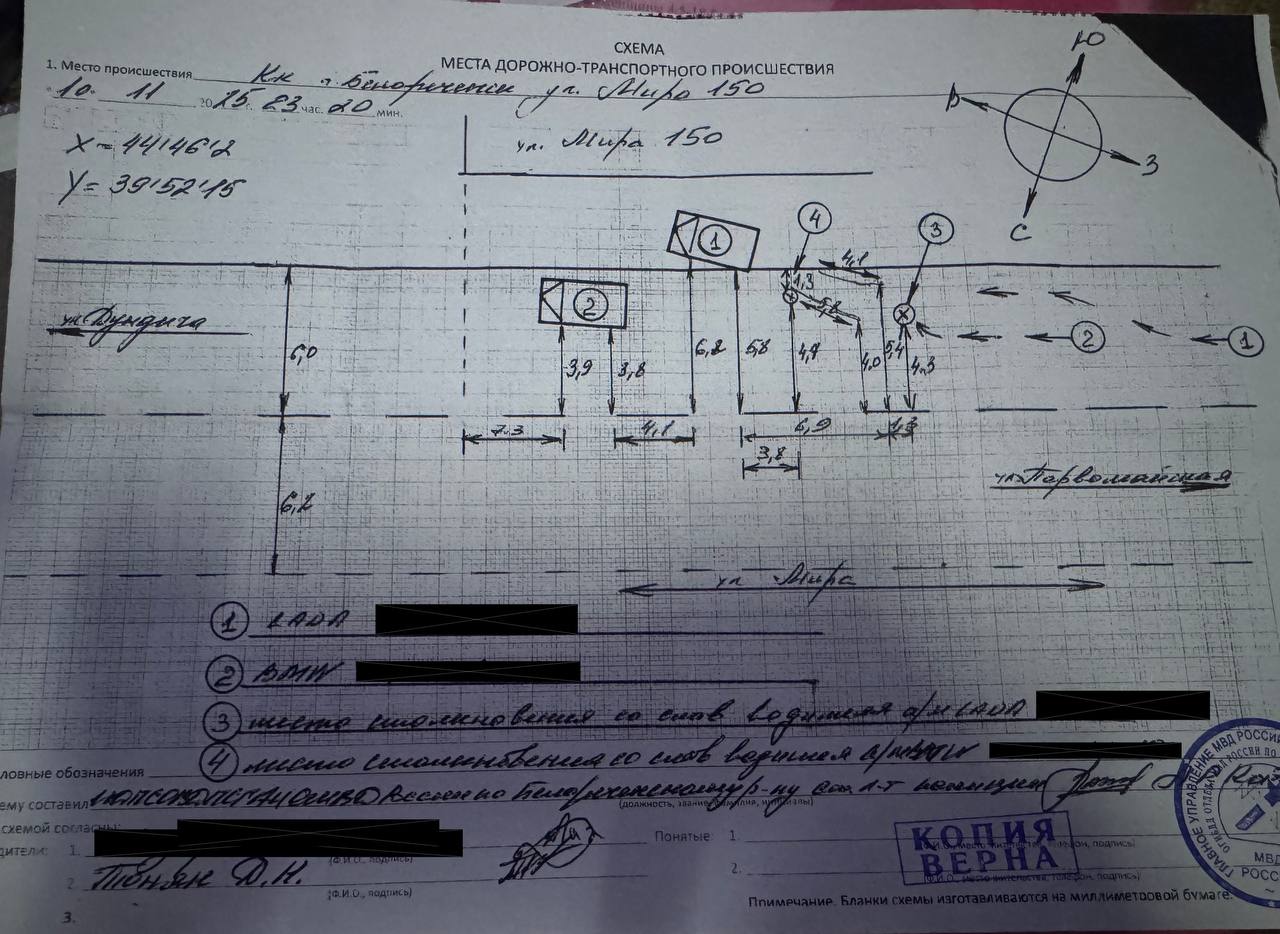 СХЕМА
МЕСТА ДОРОЖНО-ТРАНСПОРТНОГО ПРОИСШЕСТВИЯ
1. Место происшествия Кк г. Белореченск ул. Мира 150
"10" 11 2025 г. 23 час. 20 мин.
X = 44'46'2
Y = 39'52'15
ул. Мира 150
Ю
В
З
С
1
4
3
4,1
1,3
2
5,2
ул. Дундича
6,0
3,9
3,8
6,2
5,8
4,7
4,0
5,4
4.3
2
1
7.3
4,1
6,9
1,3
3,8
ул. Первомайская
6,2
ул. Мира
1 LADA
2 BMW
3 место столкновения со слов водителя а/м LADA
4 место столкновения со слов водителя а/м BMW
ловные обозначения
ему составил России по Белореченскому р-ну ст. л-т полиции
(должность, звание, фамилия, инициалы)
схемой согласны:
дители: 1.
(Ф.И.О., подпись)
2. Д.Н.
(Ф.И.О., подпись)
3.
Понятые: 1.
2.
КОПИЯ
ВЕРНА
ГЛАВНОЕ УПРАВЛЕНИЕ МВД РОССИИ
МВД
РОСС
Примечание. Бланки схемы изготавливаются на миллиметровой бумаге.